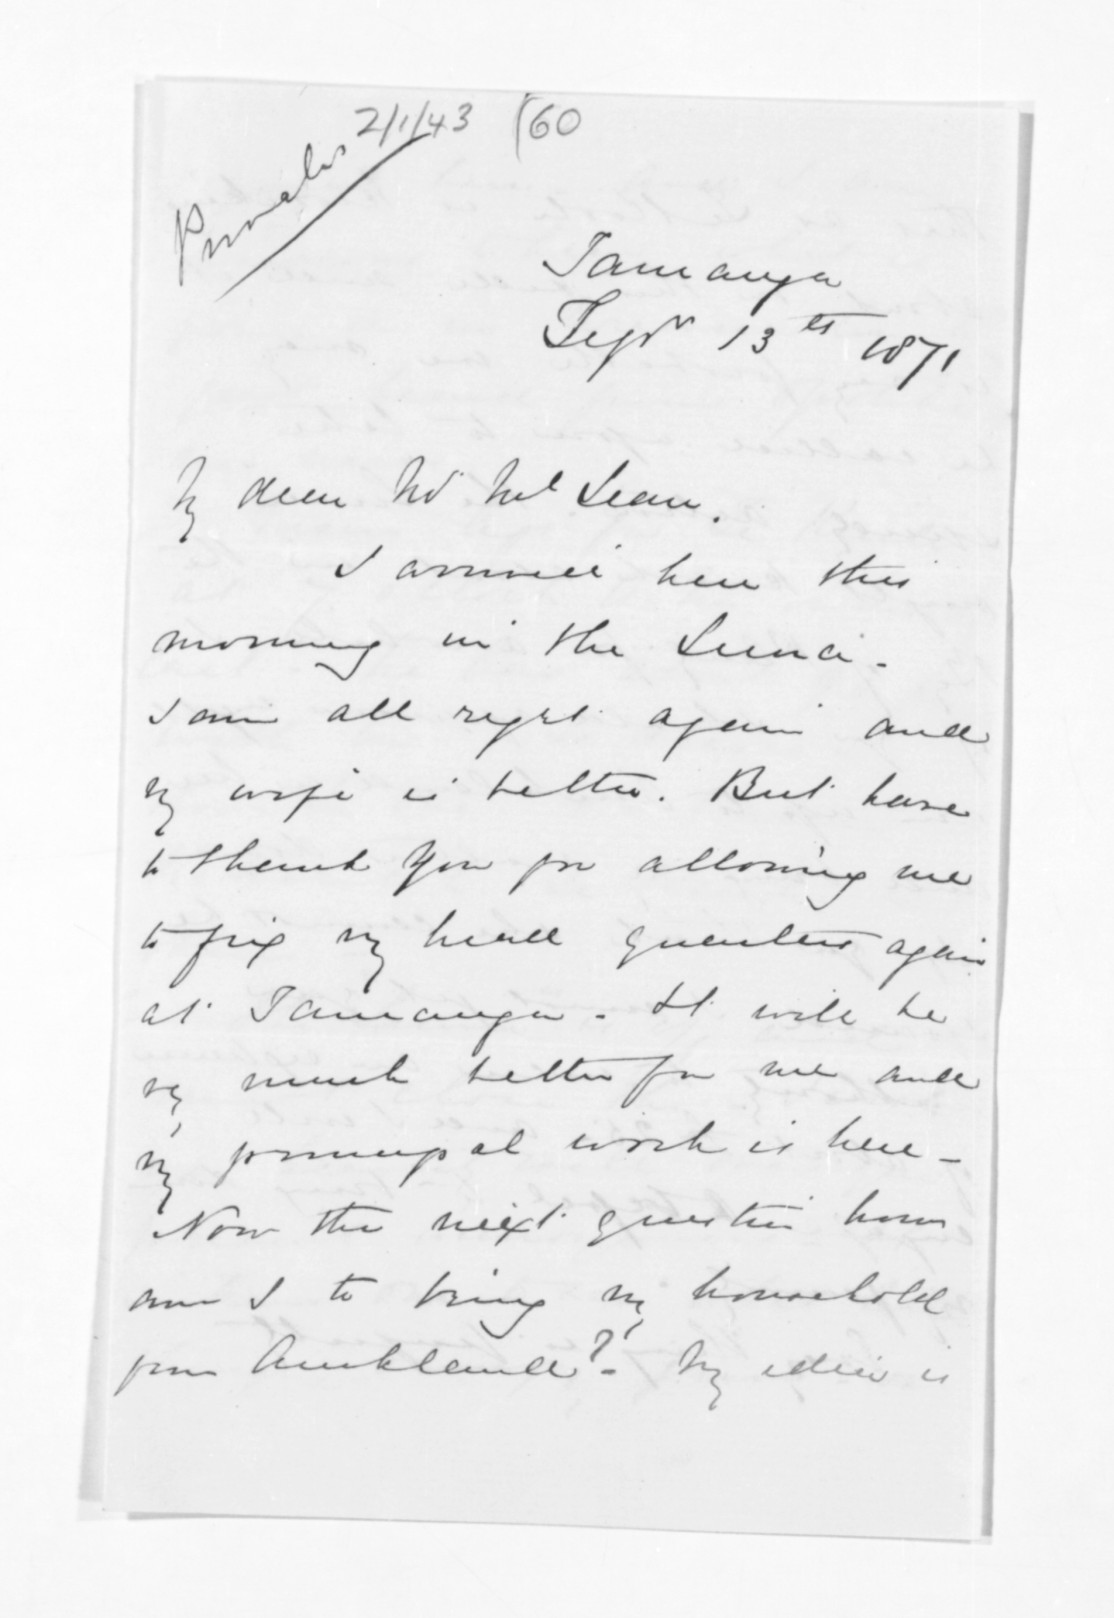 2/1/43 (60
Private
Tauranga
Sepr 13th 1871
My dear Mr McLean.
I arrived here this
morning in the Luna.
I am all right again and
my wife is better. But have
to thank you for allowing me
to fix my head quarters again
at Tauranga. It will be
very much better for me and
my principal work is here -
Now the next question how
am I to bring my household
from Auckland? - My idea is